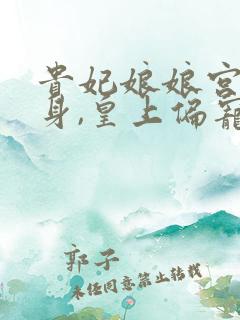 貴妃娘娘宮
身,皇上偏寵
郭子
未经同意禁止转载